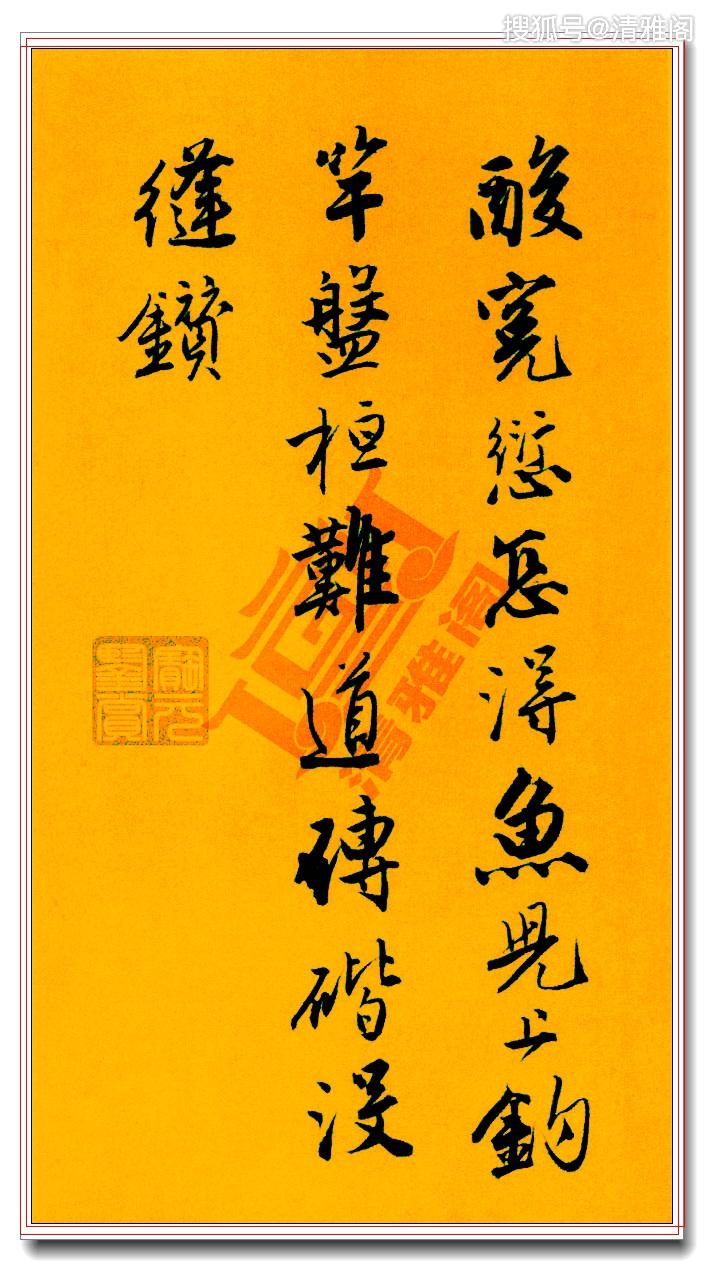 搜狐号@清雅阁
酸寃愆怎得魚兒上鈎
竿盤桓難道磚階没
縫鑽
清雅阁